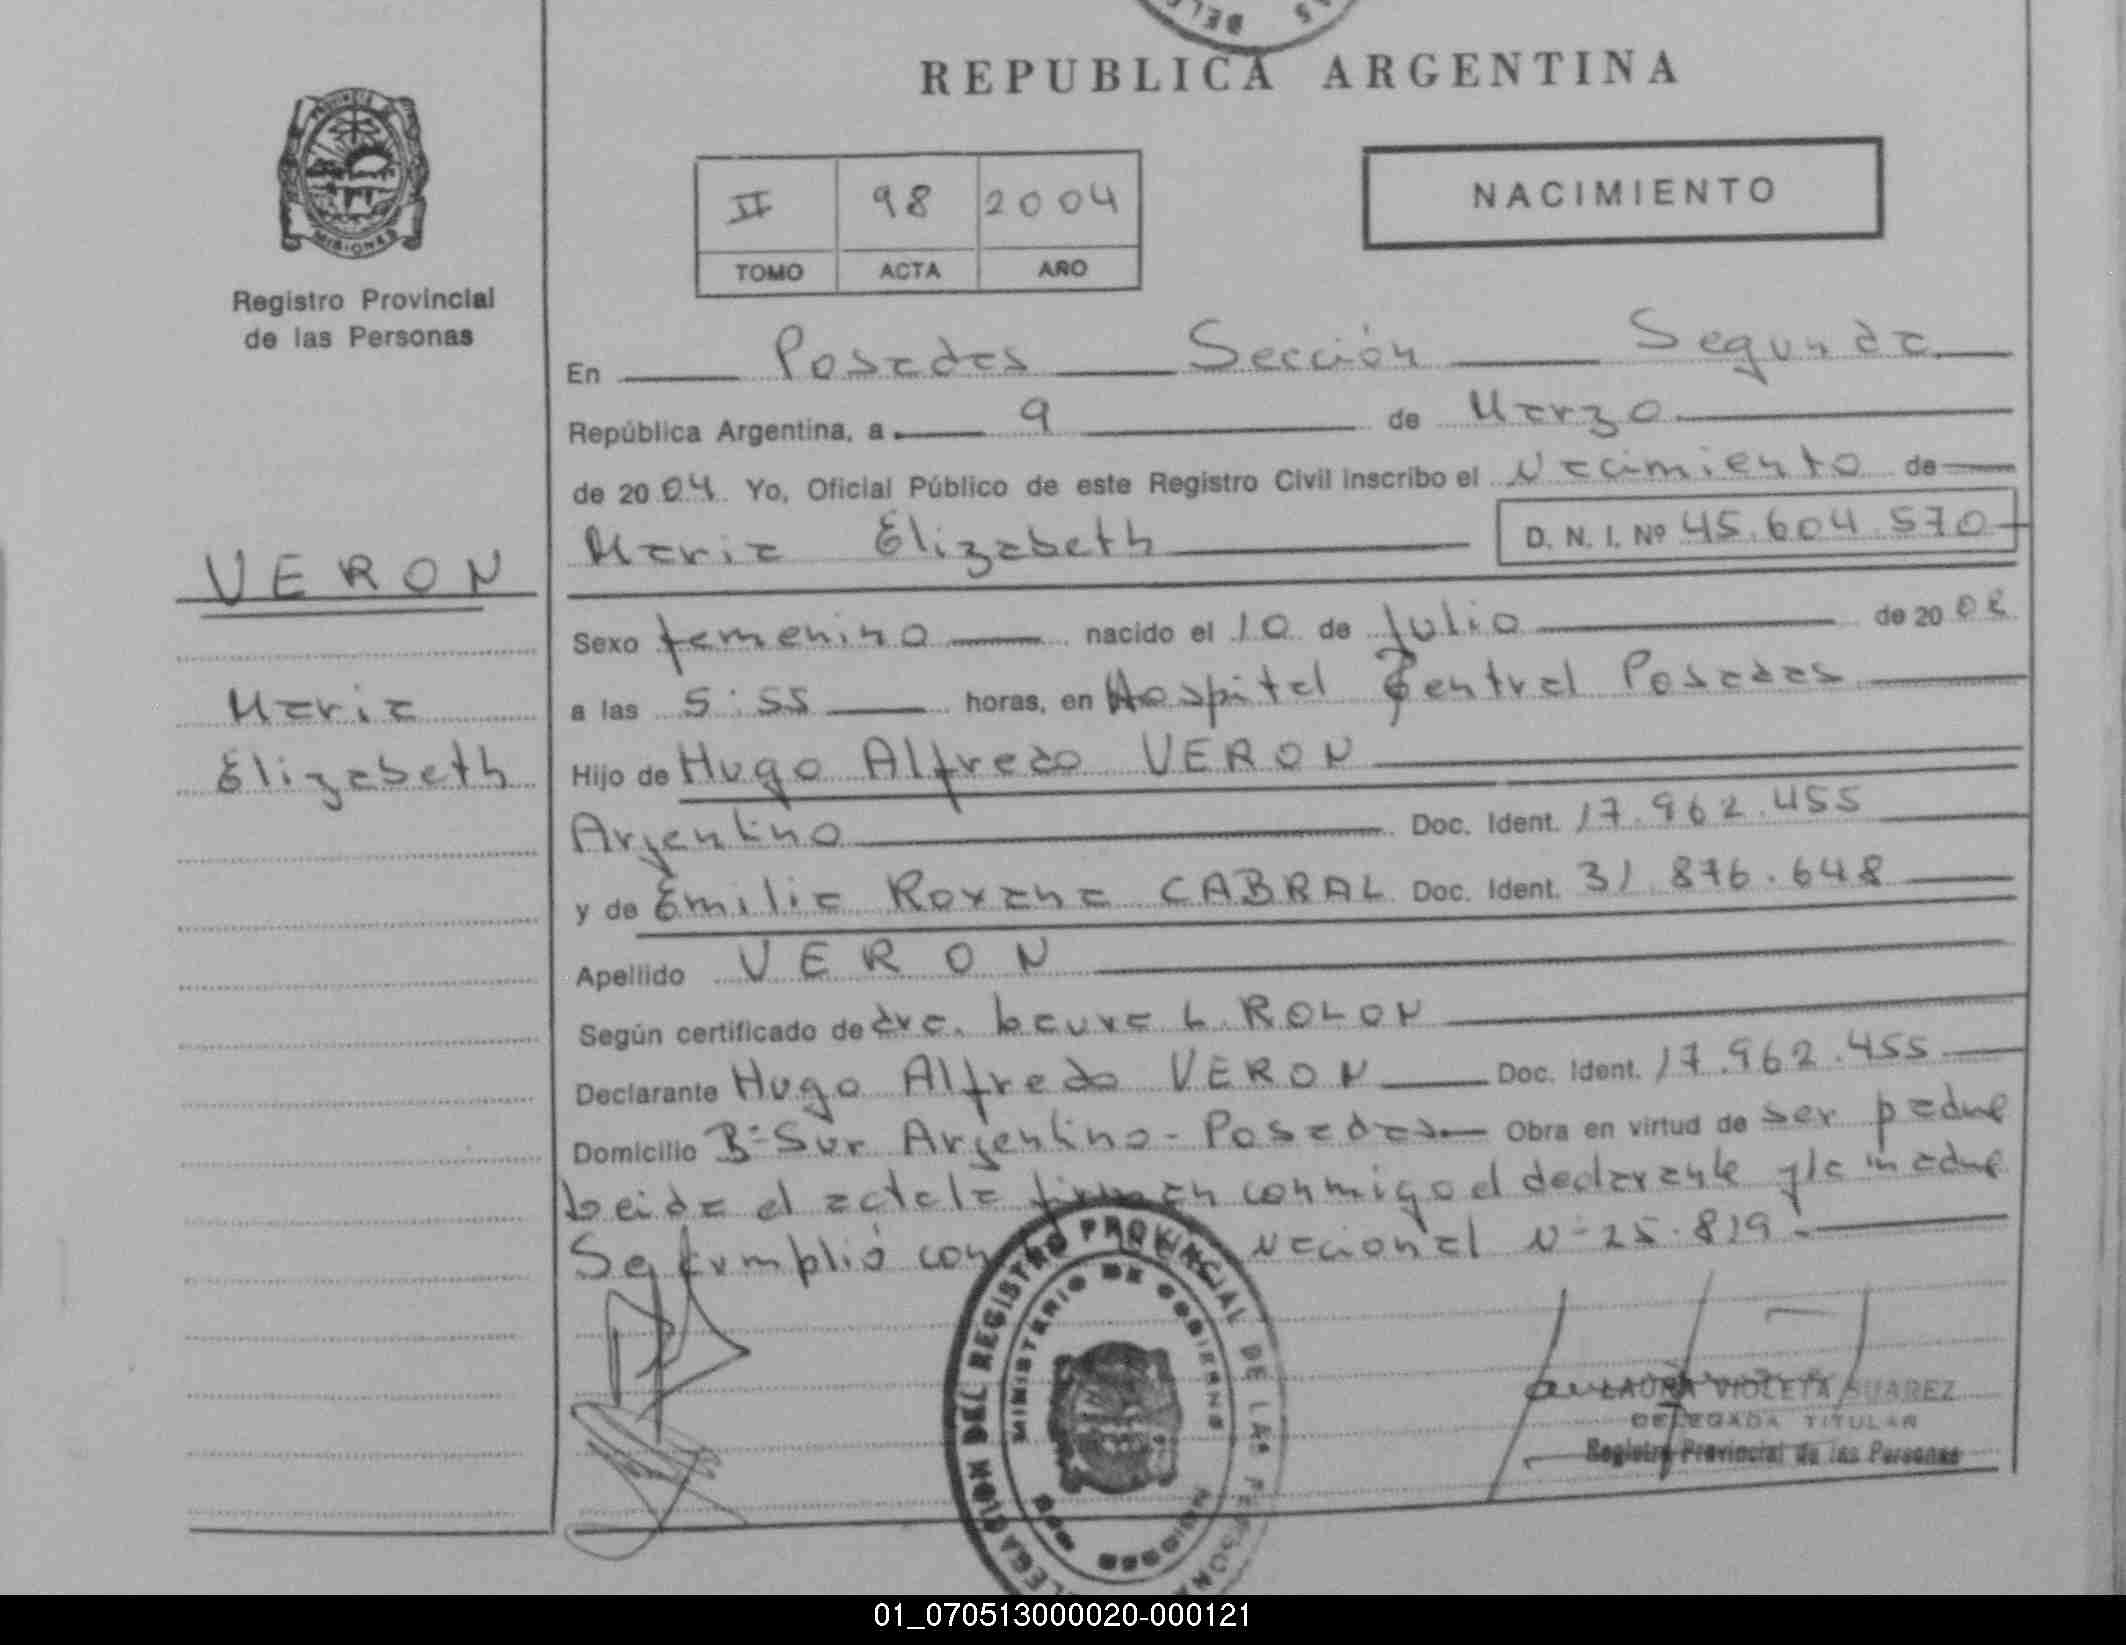 REPUBLICA ARGENTINA
NACIMIENTO
II 98 2004
TOMO ACTA AÑO
PROVINCIA DE
MISIONES
Registro Provincial
de las Personas
En Posadas Sección Segunda
República Argentina, a 9 de Marzo
de 2004 Yo, Oficial Público de este Registro Civil inscribo el Nacimiento de
Maria Elizabeth D. N. I. Nº 45.604.570
VERON
Maria
Elizabeth
Sexo femenino nacido el 10 de Julio de 20
a las 5:55 horas, en Hospital Central Posadas
Hijo de Hugo Alfredo VERON
Argentino Doc. Ident. 17.962.455
y de Emilia Roxana CABRAL Doc. Ident. 31.876.648
Apellido VERON
Según certificado de dra. Laura L. ROLON
Declarante Hugo Alfredo VERON Doc. Ident. 17.962.455
Domicilio Bº Sur Argentino - Posadas Obra en virtud de ser padre
Leida el acta la firman conmigo el declarante y la madre
Se cumplió con Nacional Nº 25.819.-
DELEGACION DEL REGISTRO PROVINCIAL DE LAS PERSONAS
MINISTERIO DE GOBIERNO
MISIONES
LAURA VIOLETA SUAREZ
DELEGADA TITULAR
Registro Provincial de las Personas
01_070513000020-000121